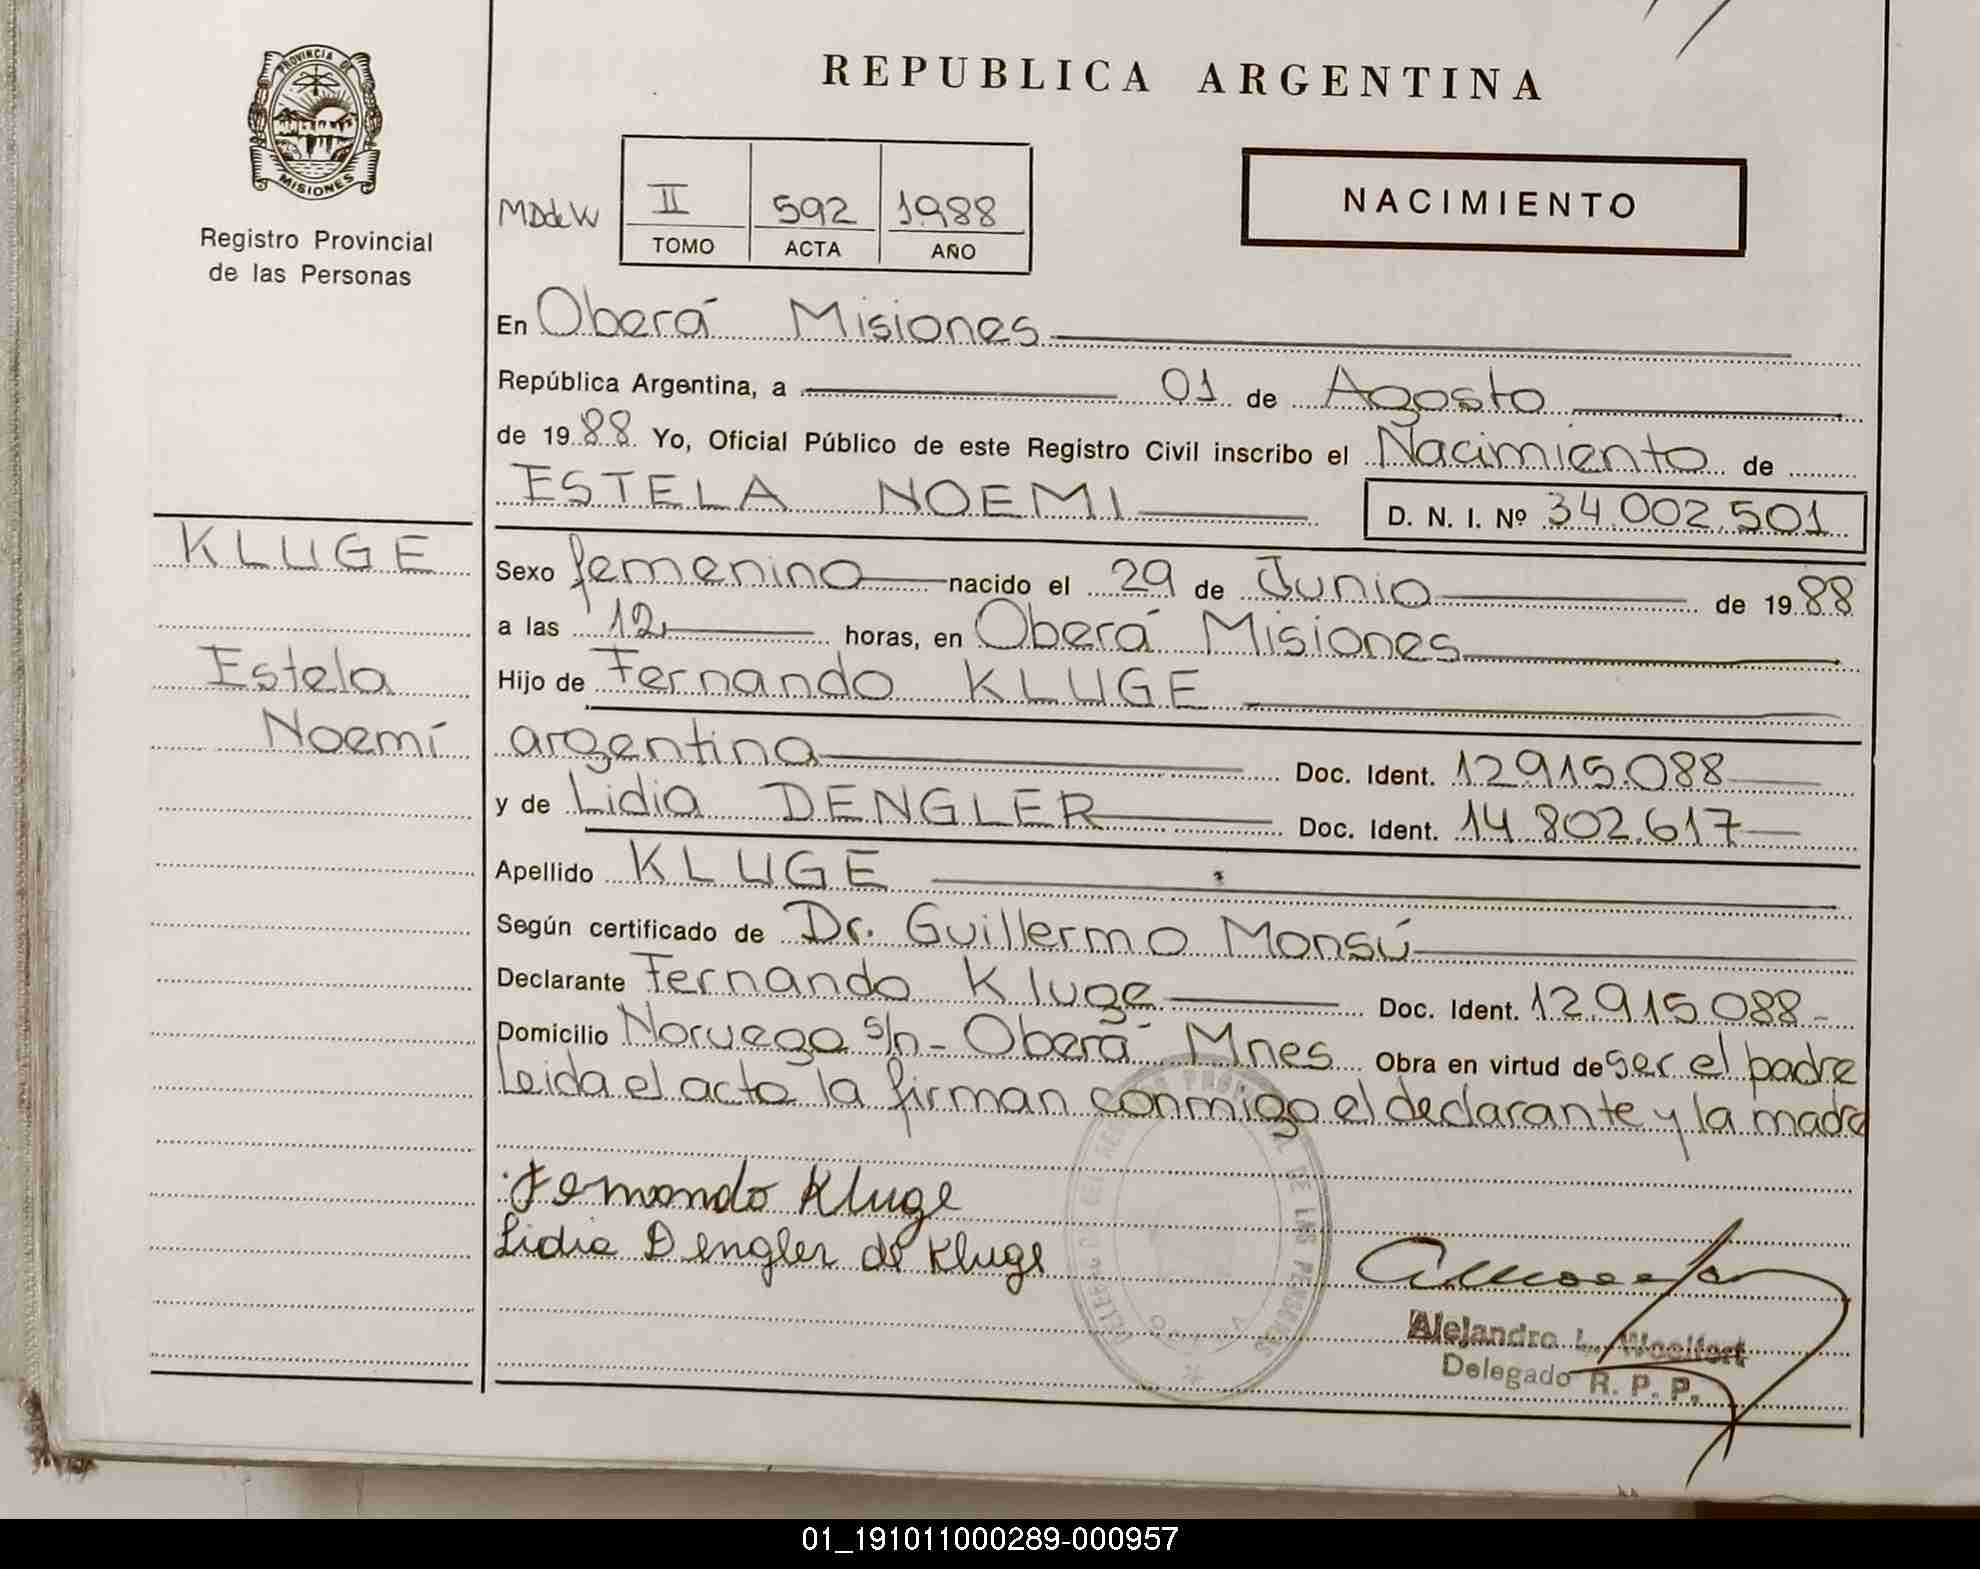 PROVINCIA DE
MISIONES
Registro Provincial
de las Personas
REPUBLICA ARGENTINA
NACIMIENTO
MDdeW
II 592 1988
TOMO ACTA AÑO
En Oberá Misiones
República Argentina, a 01 de Agosto
de 1988 Yo, Oficial Público de este Registro Civil inscribo el Nacimiento de
ESTELA NOEMI D. N. I. Nº 34.002.501
KLUGE
Estela
Noemí
Sexo femenino nacido el 29 de Junio de 1988
a las 12 horas, en Oberá Misiones
Hijo de Fernando KLUGE
argentina Doc. Ident. 12.915.088
y de Lidia DENGLER Doc. Ident. 14.802.617
Apellido KLUGE
Según certificado de Dr. Guillermo Monsú
Declarante Fernando Kluge Doc. Ident. 12.915.088-
Domicilio Noruega s/n - Oberá Mnes Obra en virtud de ser el padre
Leida el acta la firman conmigo el declarante y la madre
Fernando Kluge
Lidia Dengler de Kluge
DE LAS PERSONAS
Alejandro L. Woelfert
Delegado R. P. P.
01_191011000289-000957